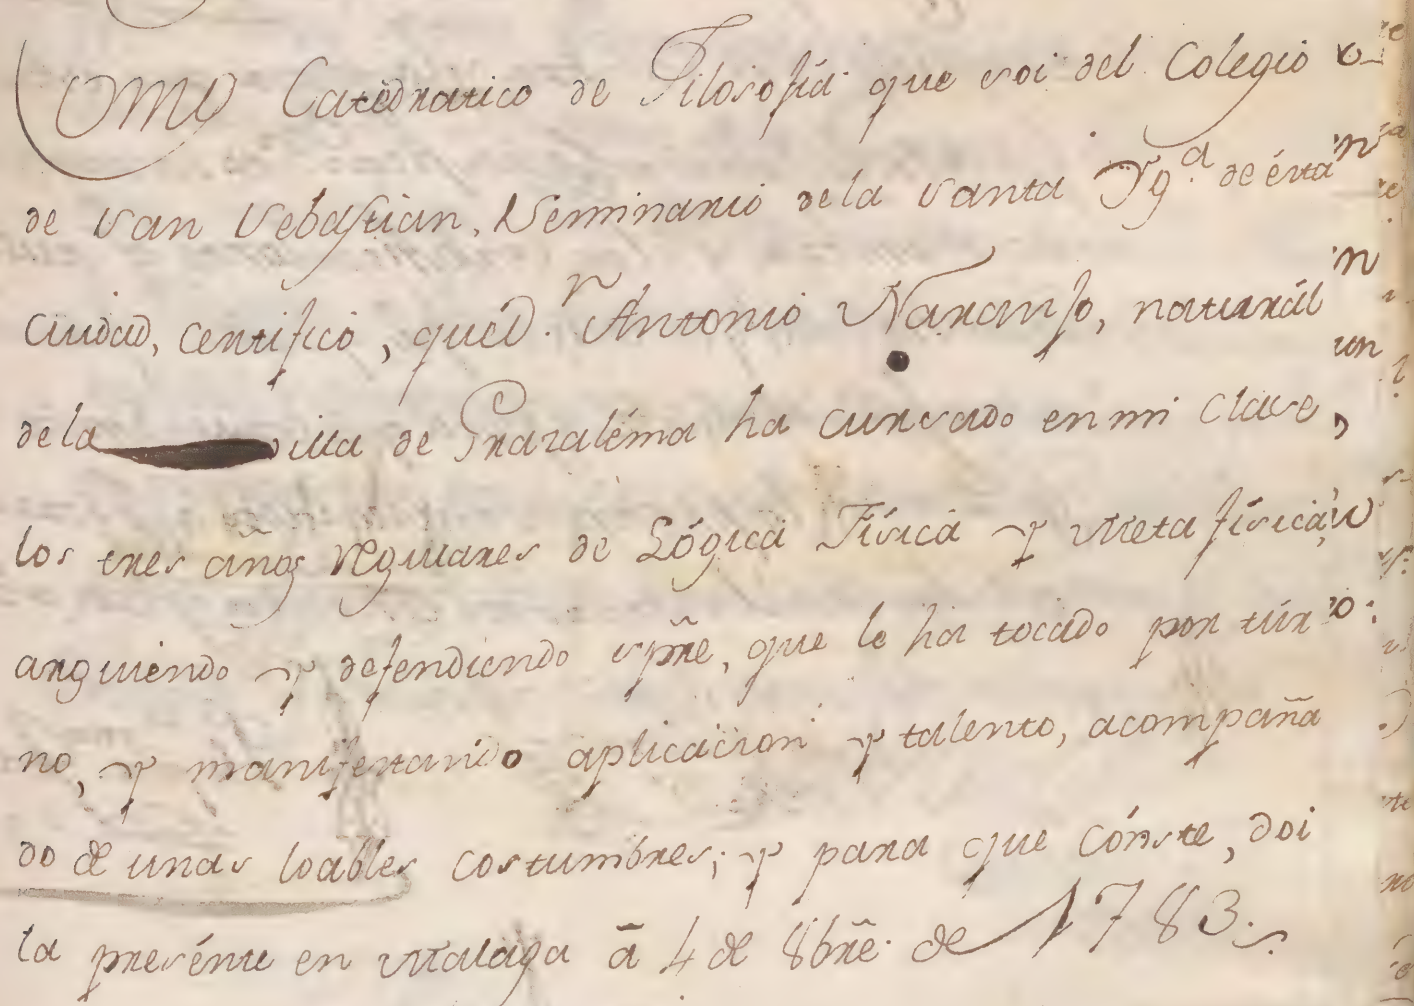 Como Catedratico de Filosofia que soi del Colegio
de San Sebastian, Seminario de la Santa Yg.ª de ésta
Ciudad, certifico, que D.n Antonio Naranjo, naturál
de la villa de Grazaléma ha cursado en mi Clase,
los tres años regulares de Lógica Física y Metafísica,
arguiendo y defendiendo spñe, que le ha tocado por túr
no, y manifestando aplicacion y talento, acompaña
do de unas loables costumbres; y para que cónste, doi
la presénte en Malaga ā 4 de 8bñe. de 1783.